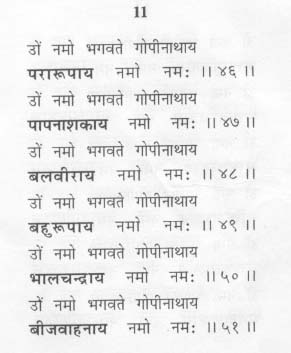 11
उों नमो भगवते गोपीनाथाय
परारूपाय नमो नमः ।। ४६ ।।
उों नमो भगवते गोपीनाथाय
पापनाशकाय नमो नमः ।। ४७ ।।
उों नमो भगवते गोपीनाथाय
बलवीराय नमो नमः ।। ४८ ।।
उों नमो भगवते गोपीनाथाय
बहुरूपाय नमो नमः ।। ४९ ।।
उों नमो भगवते गोपीनाथाय
भालचन्द्राय नमो नमः ।। ५० ।।
उों नमो भगवते गोपीनाथाय
बीजवाहनाय नमो नमः ।। ५१ ।।